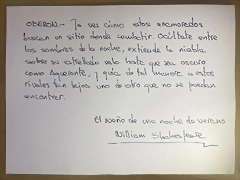 OBERON.- Tú ves cómo estos enamorados
buscan un sitio donde combatir. Ocúltate entre
las sombras de la noche, extiende la niebla
sobre su estrellado velo hasta que sea oscuro
como Aqueronte, y guía de tal manera a estos
rivales tan lejos uno de otro que no se puedan
encontrar.
El sueño de una noche de verano
William Shakespeare